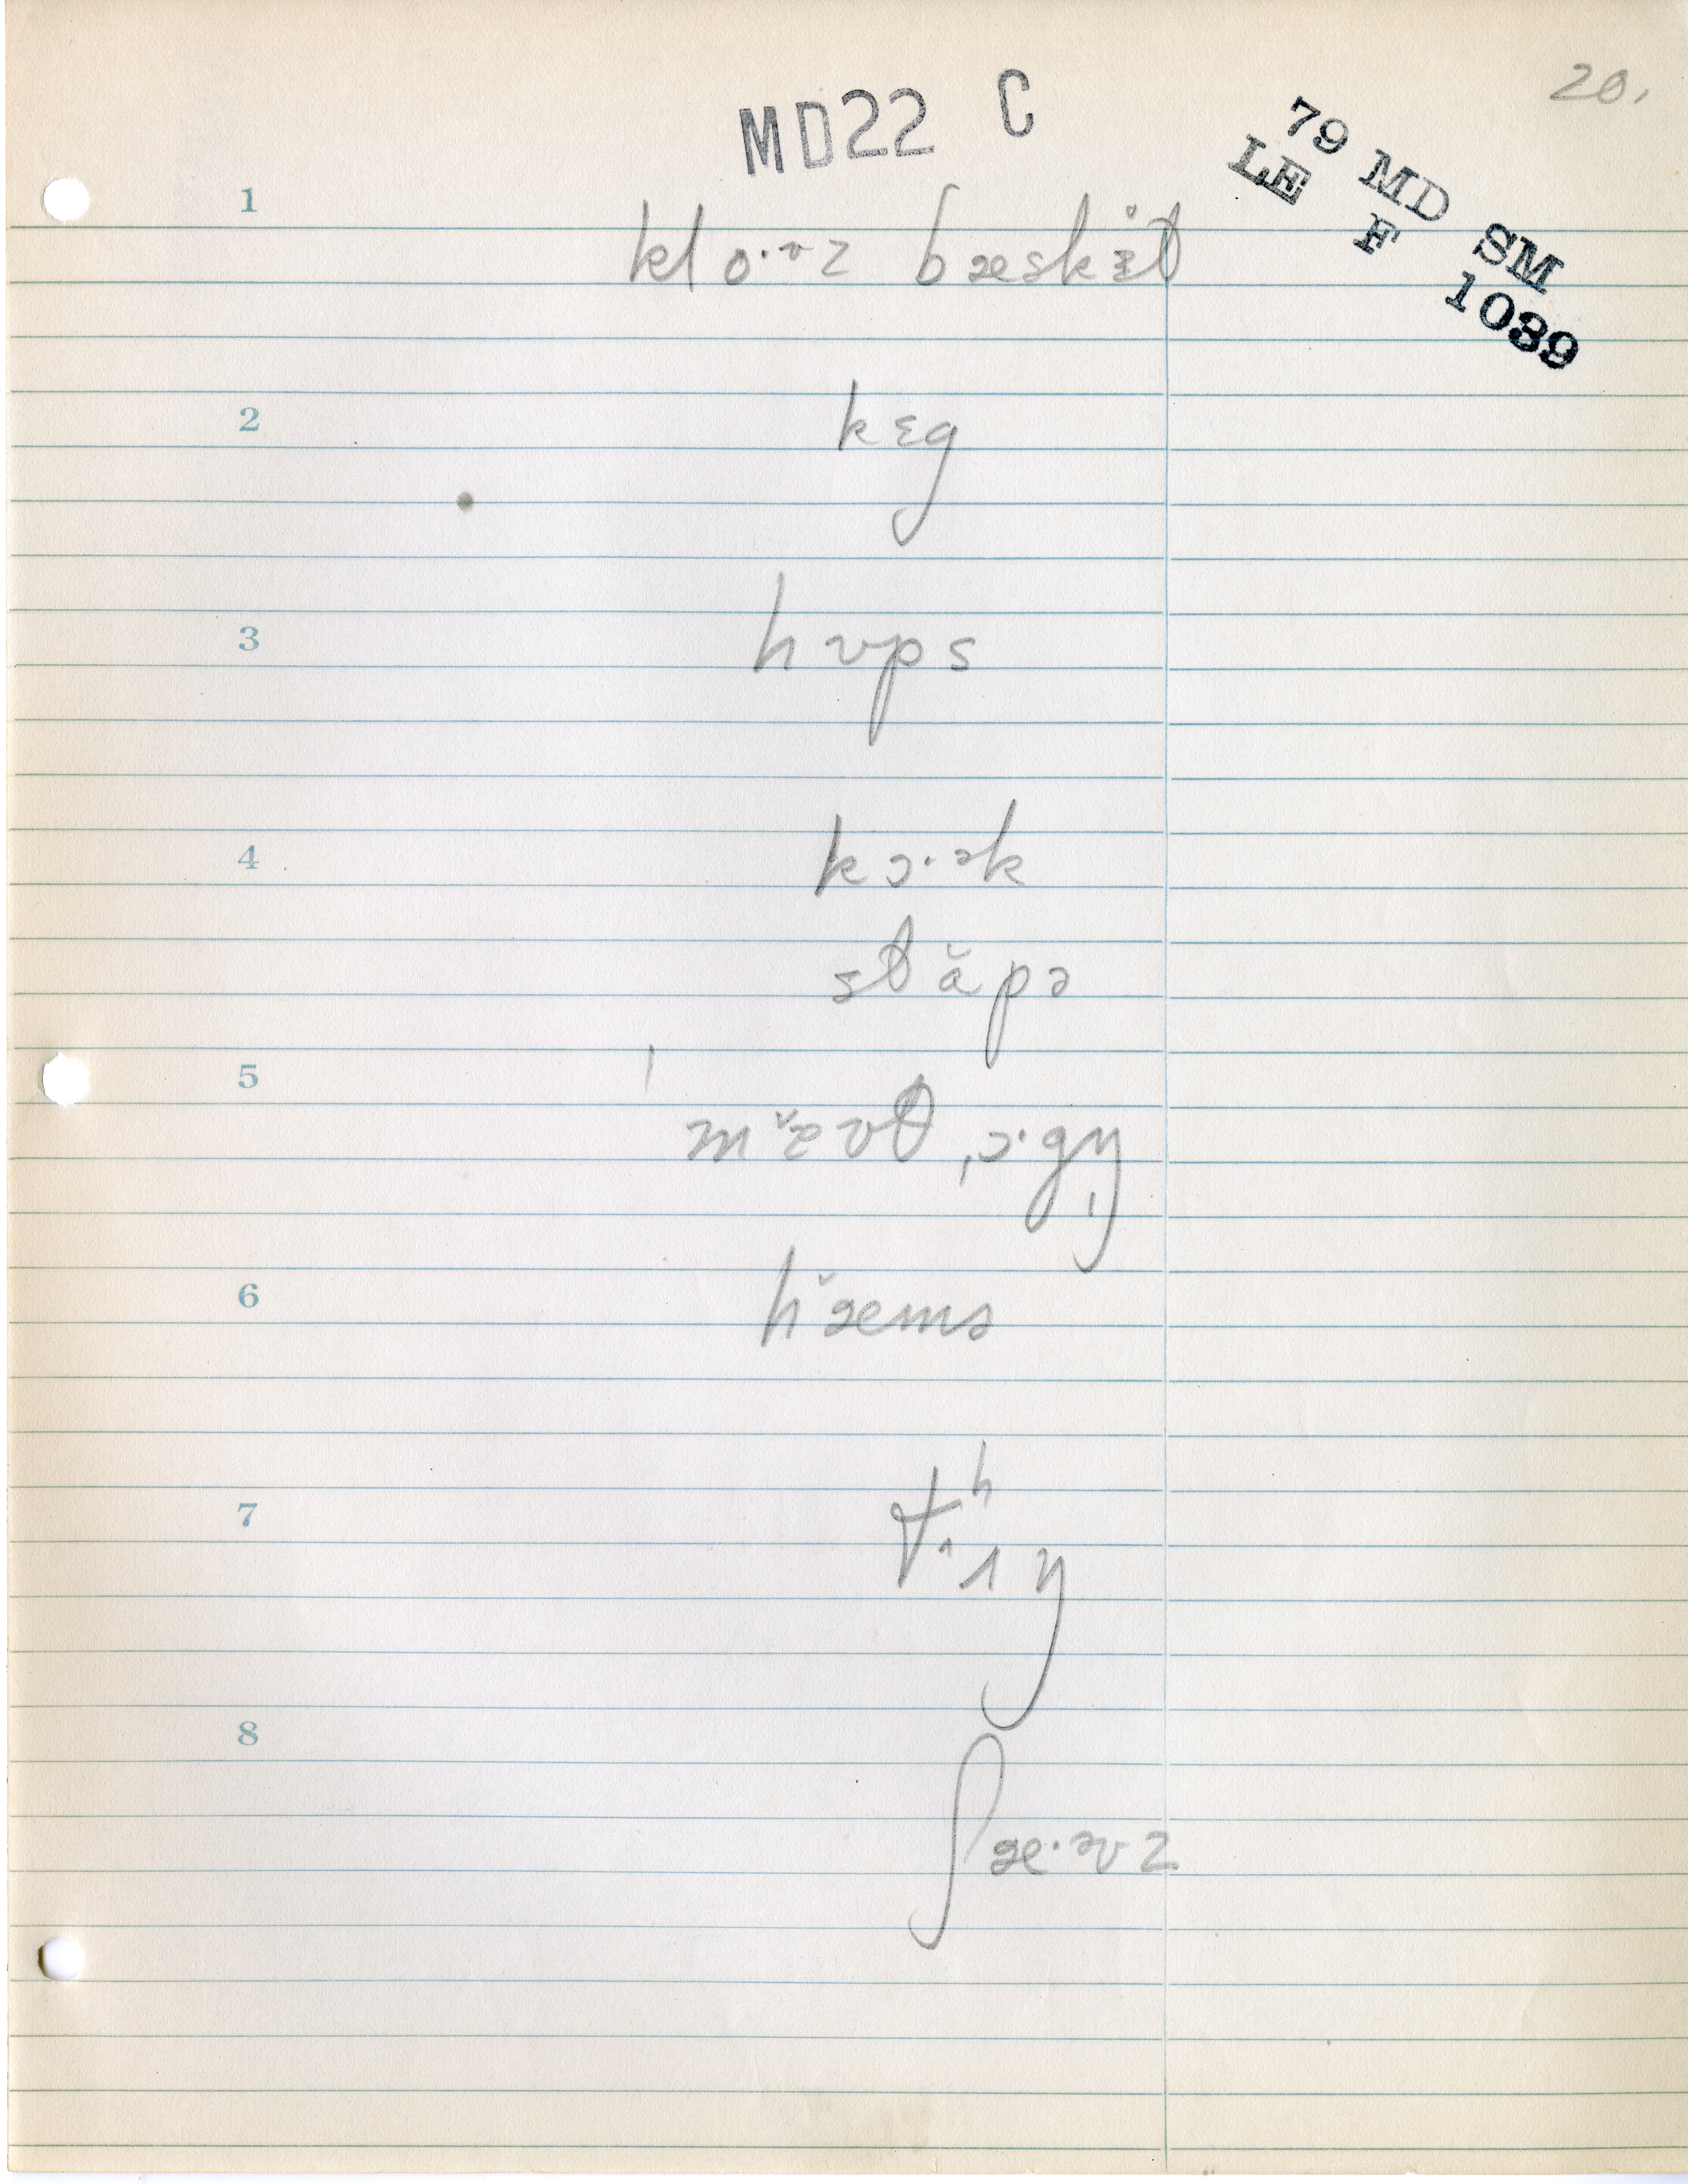 20.
MD22 C
79 MD SM
LE F 1089
1
klo·ʊz bæskɨt
2
kɛg
3
hʊps
4
kɔ·ək
stăpə
5
mæ̌ʊt ˌɔ·gṇ
6
hæ̌ms
7
tʰ·ɪŋ
8
ʃæ·əvz